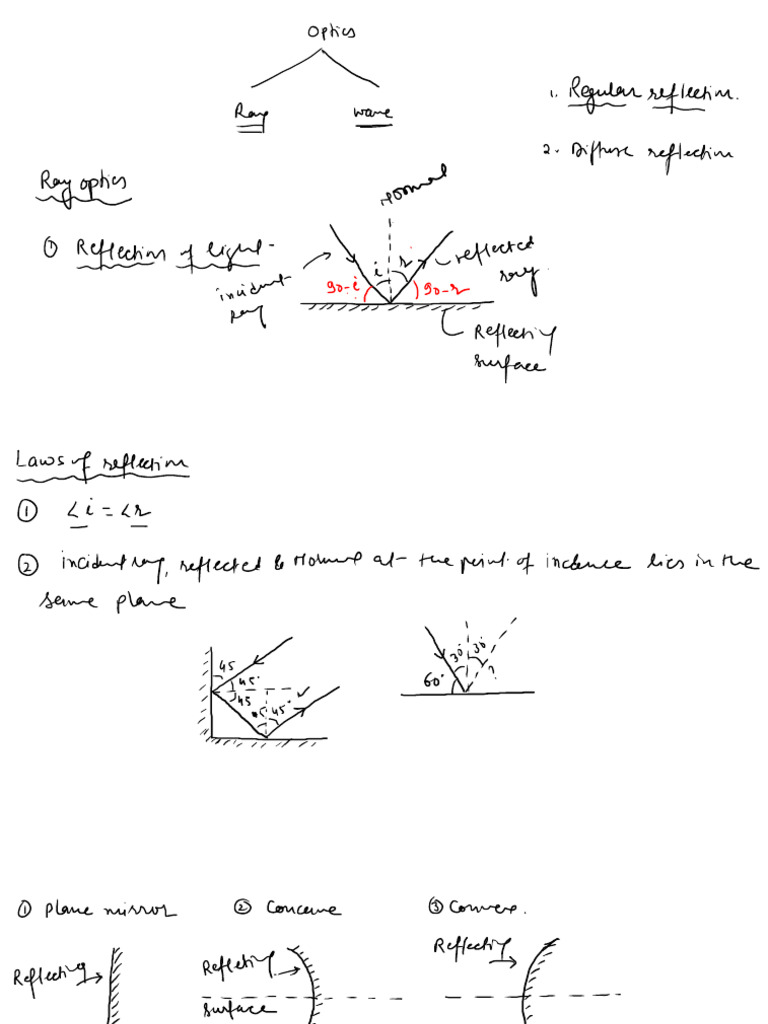 Optics
Ray wave
1. Regular reflection.
2. Diffuse reflection
Ray optics
① Reflection of light-
Normal
incident ray
i r
reflected ray
90-i 90-r
Reflecting surface
Laws of reflection
① ∠i = ∠r
② incident ray, reflected & Normal at the point of incidence lies in the
same plane
45 45°
45
45 45°
30° 30°
60° ?
① Plane mirror ② Concave ③ Convex.
Reflecting
Reflecting
surface
Reflecting